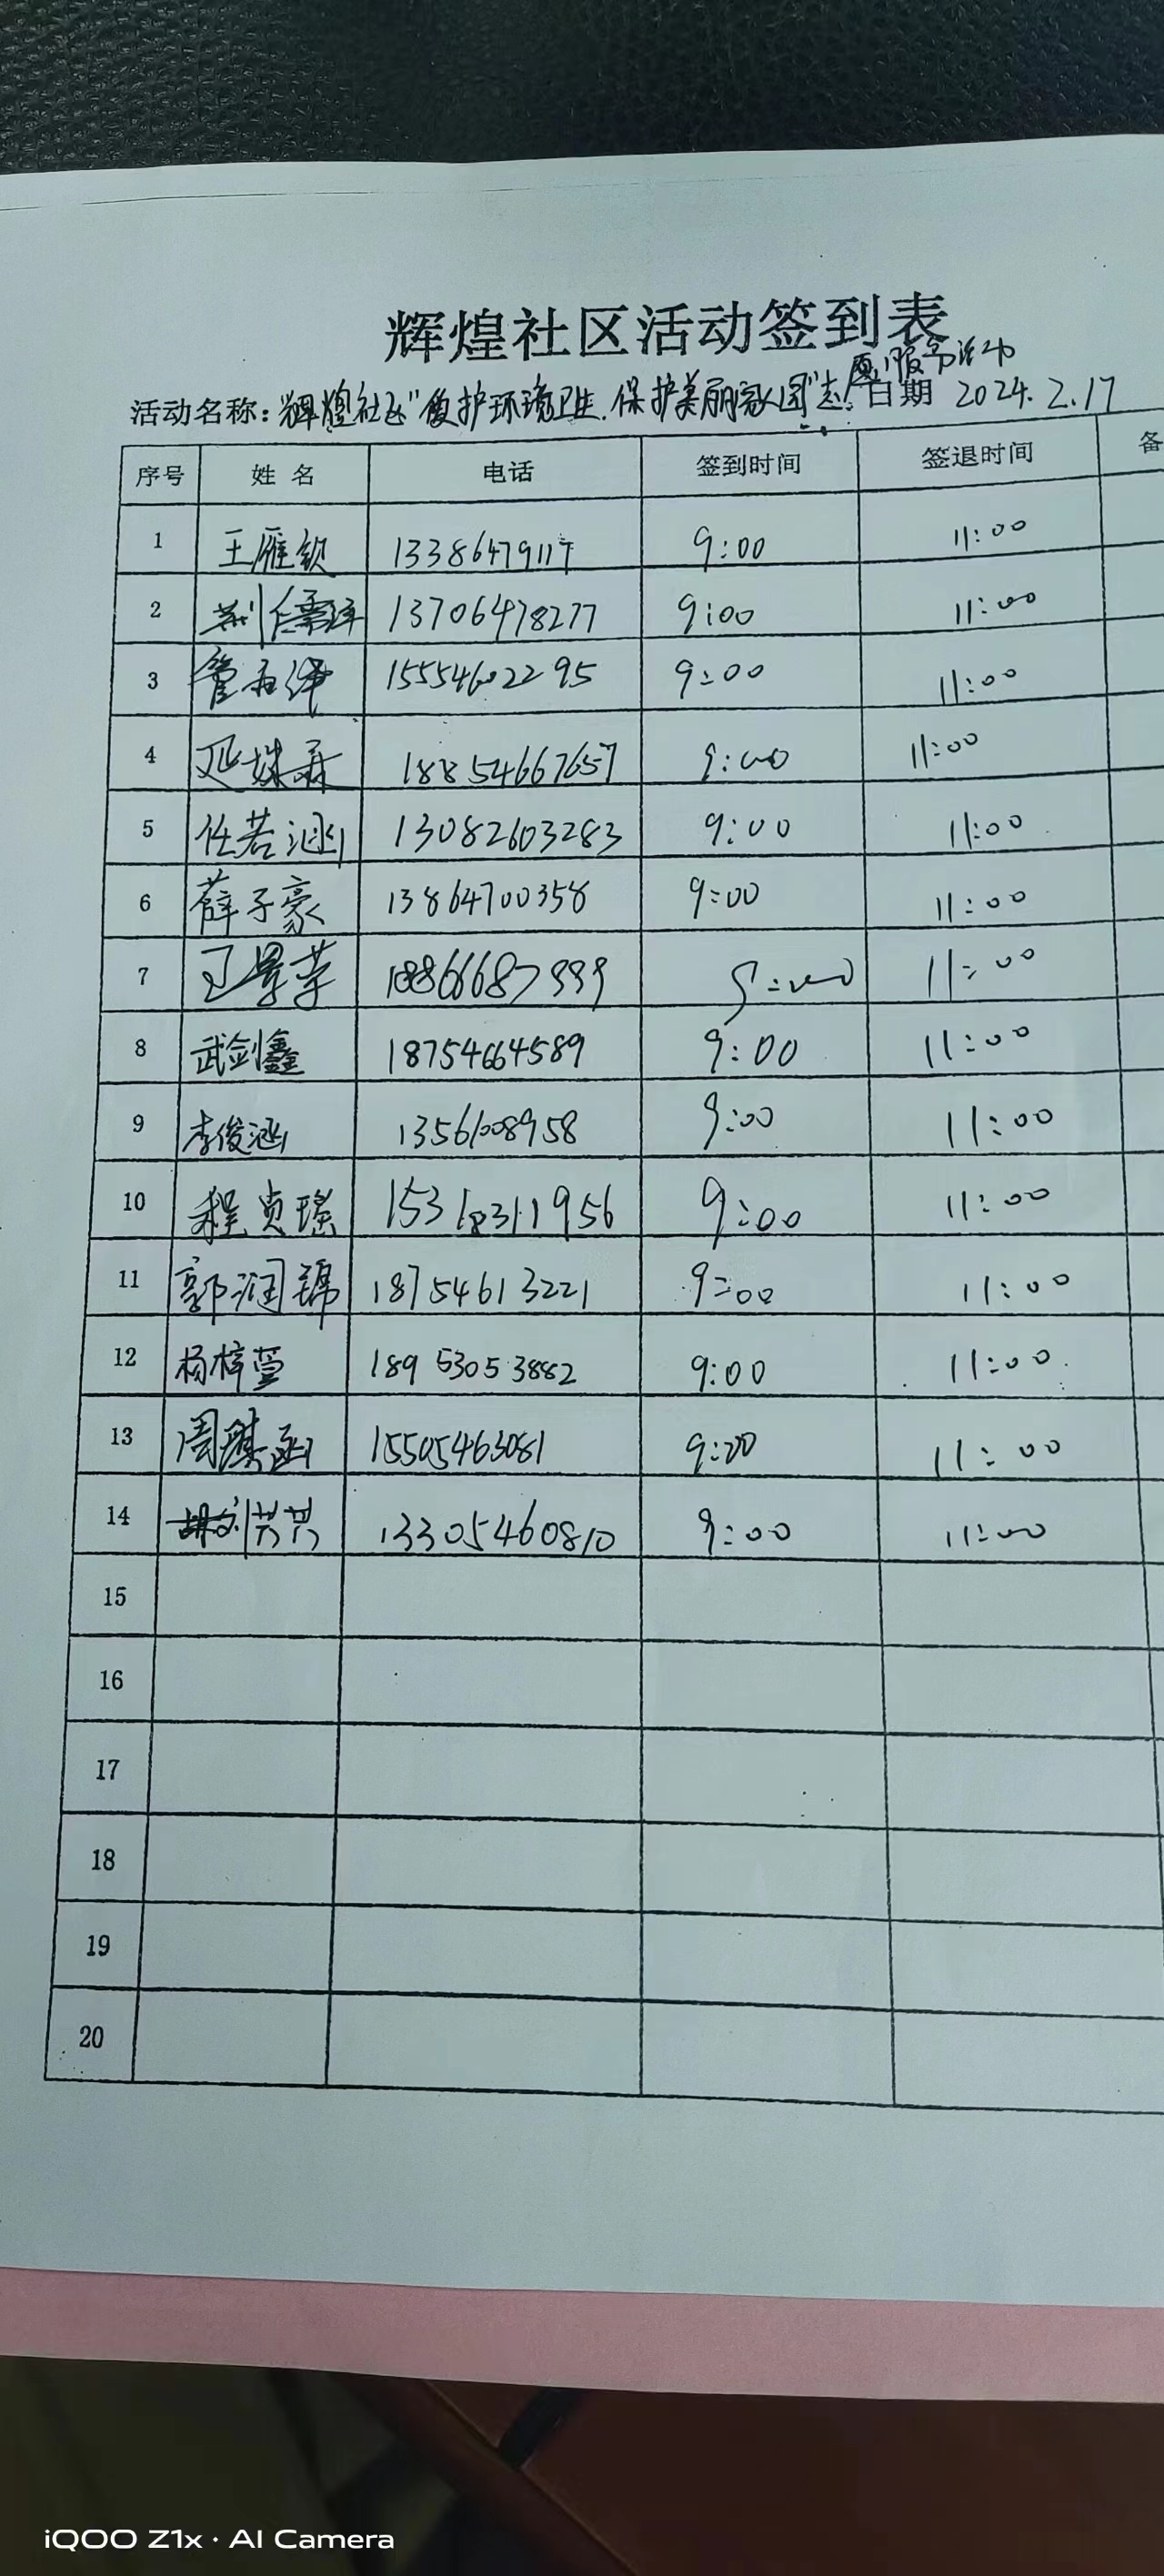 辉煌社区活动签到表
愿服务活动
活动名称：辉煌社区"爱护环境卫生.保护美丽家园"志 日期 2024.2.17
序号 姓名 电话 签到时间 签退时间 备
1 王雁钦 1338647911 9:00 11:00
2 荆儒 13706478277 9:00 11:00
3 管 15554602295 9:00 11:00
4 延 18854667657 9:00 11:00
5 任若涵 13082603283 9:00 11:00
6 薛子豪 13864700358 9:00 11:00
7 9:00 11:00
8 武剑鑫 18754664589 9:00 11:00
9 李俊涵 13561008958 9:00 11:00
10 程贞瑶 15318311956 9:00 11:00
11 郭润 18754613221 9:00 11:00
12 杨梓萱 18953053882 9:00 11:00
13 周麒函 15505463081 9:00 11:00
14 刘芳芳 13305460810 9:00 11:00
15
16
17
18
19
20
iQOO Z1x · AI Camera